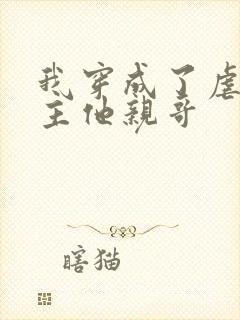 我穿成了虐
主他親哥
瞎猫